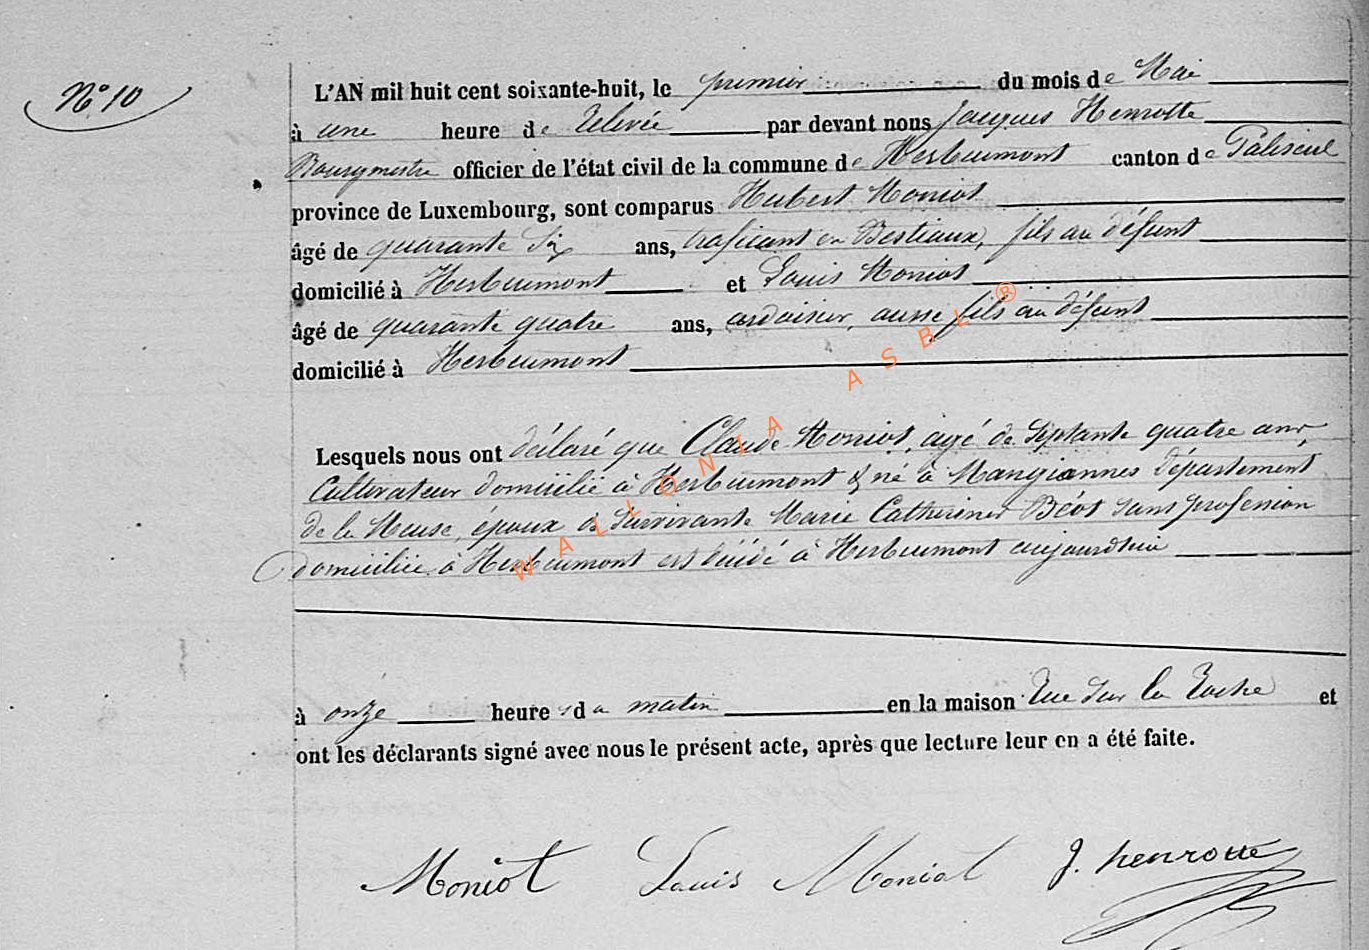 N° 10
L'AN mil huit cent soixante-huit, le premier du mois de Mai
à une heure de relevée par devant nous Jacques Henrotte
Bourgmestre officier de l'état civil de la commune de Herbeumont canton de Paliseul
province de Luxembourg, sont comparus Hubert Moniot
âgé de quarante six ans, traficant en Bestiaux, fils au défunt
domicilié à Herbeumont et Louis Moniot
âgé de quarante quatre ans, ardoisier, aussi fils au défunt
domicilié à Herbeumont
Lesquels nous ont déclaré que Claude Moniot, agé de septante quatre ans,
Cultivateur domicilié à Herbeumont & né à Mangiennes département
de la Meuse, époux de survivante Marie Catherine Béot sans profession
domiciliée à Herbeumont est décédé à Herbeumont aujourd'hui
à onze heures du matin en la maison Rue sur la Roche et
ont les déclarants signé avec nous le présent acte, après que lecture leur en a été faite.
Moniot Louis Moniot J. henrotte
WALLONIA ASBL ®